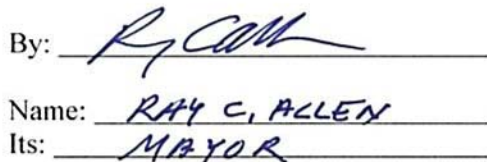 By:
Name: RAY C. ALLEN
Its: MAYOR